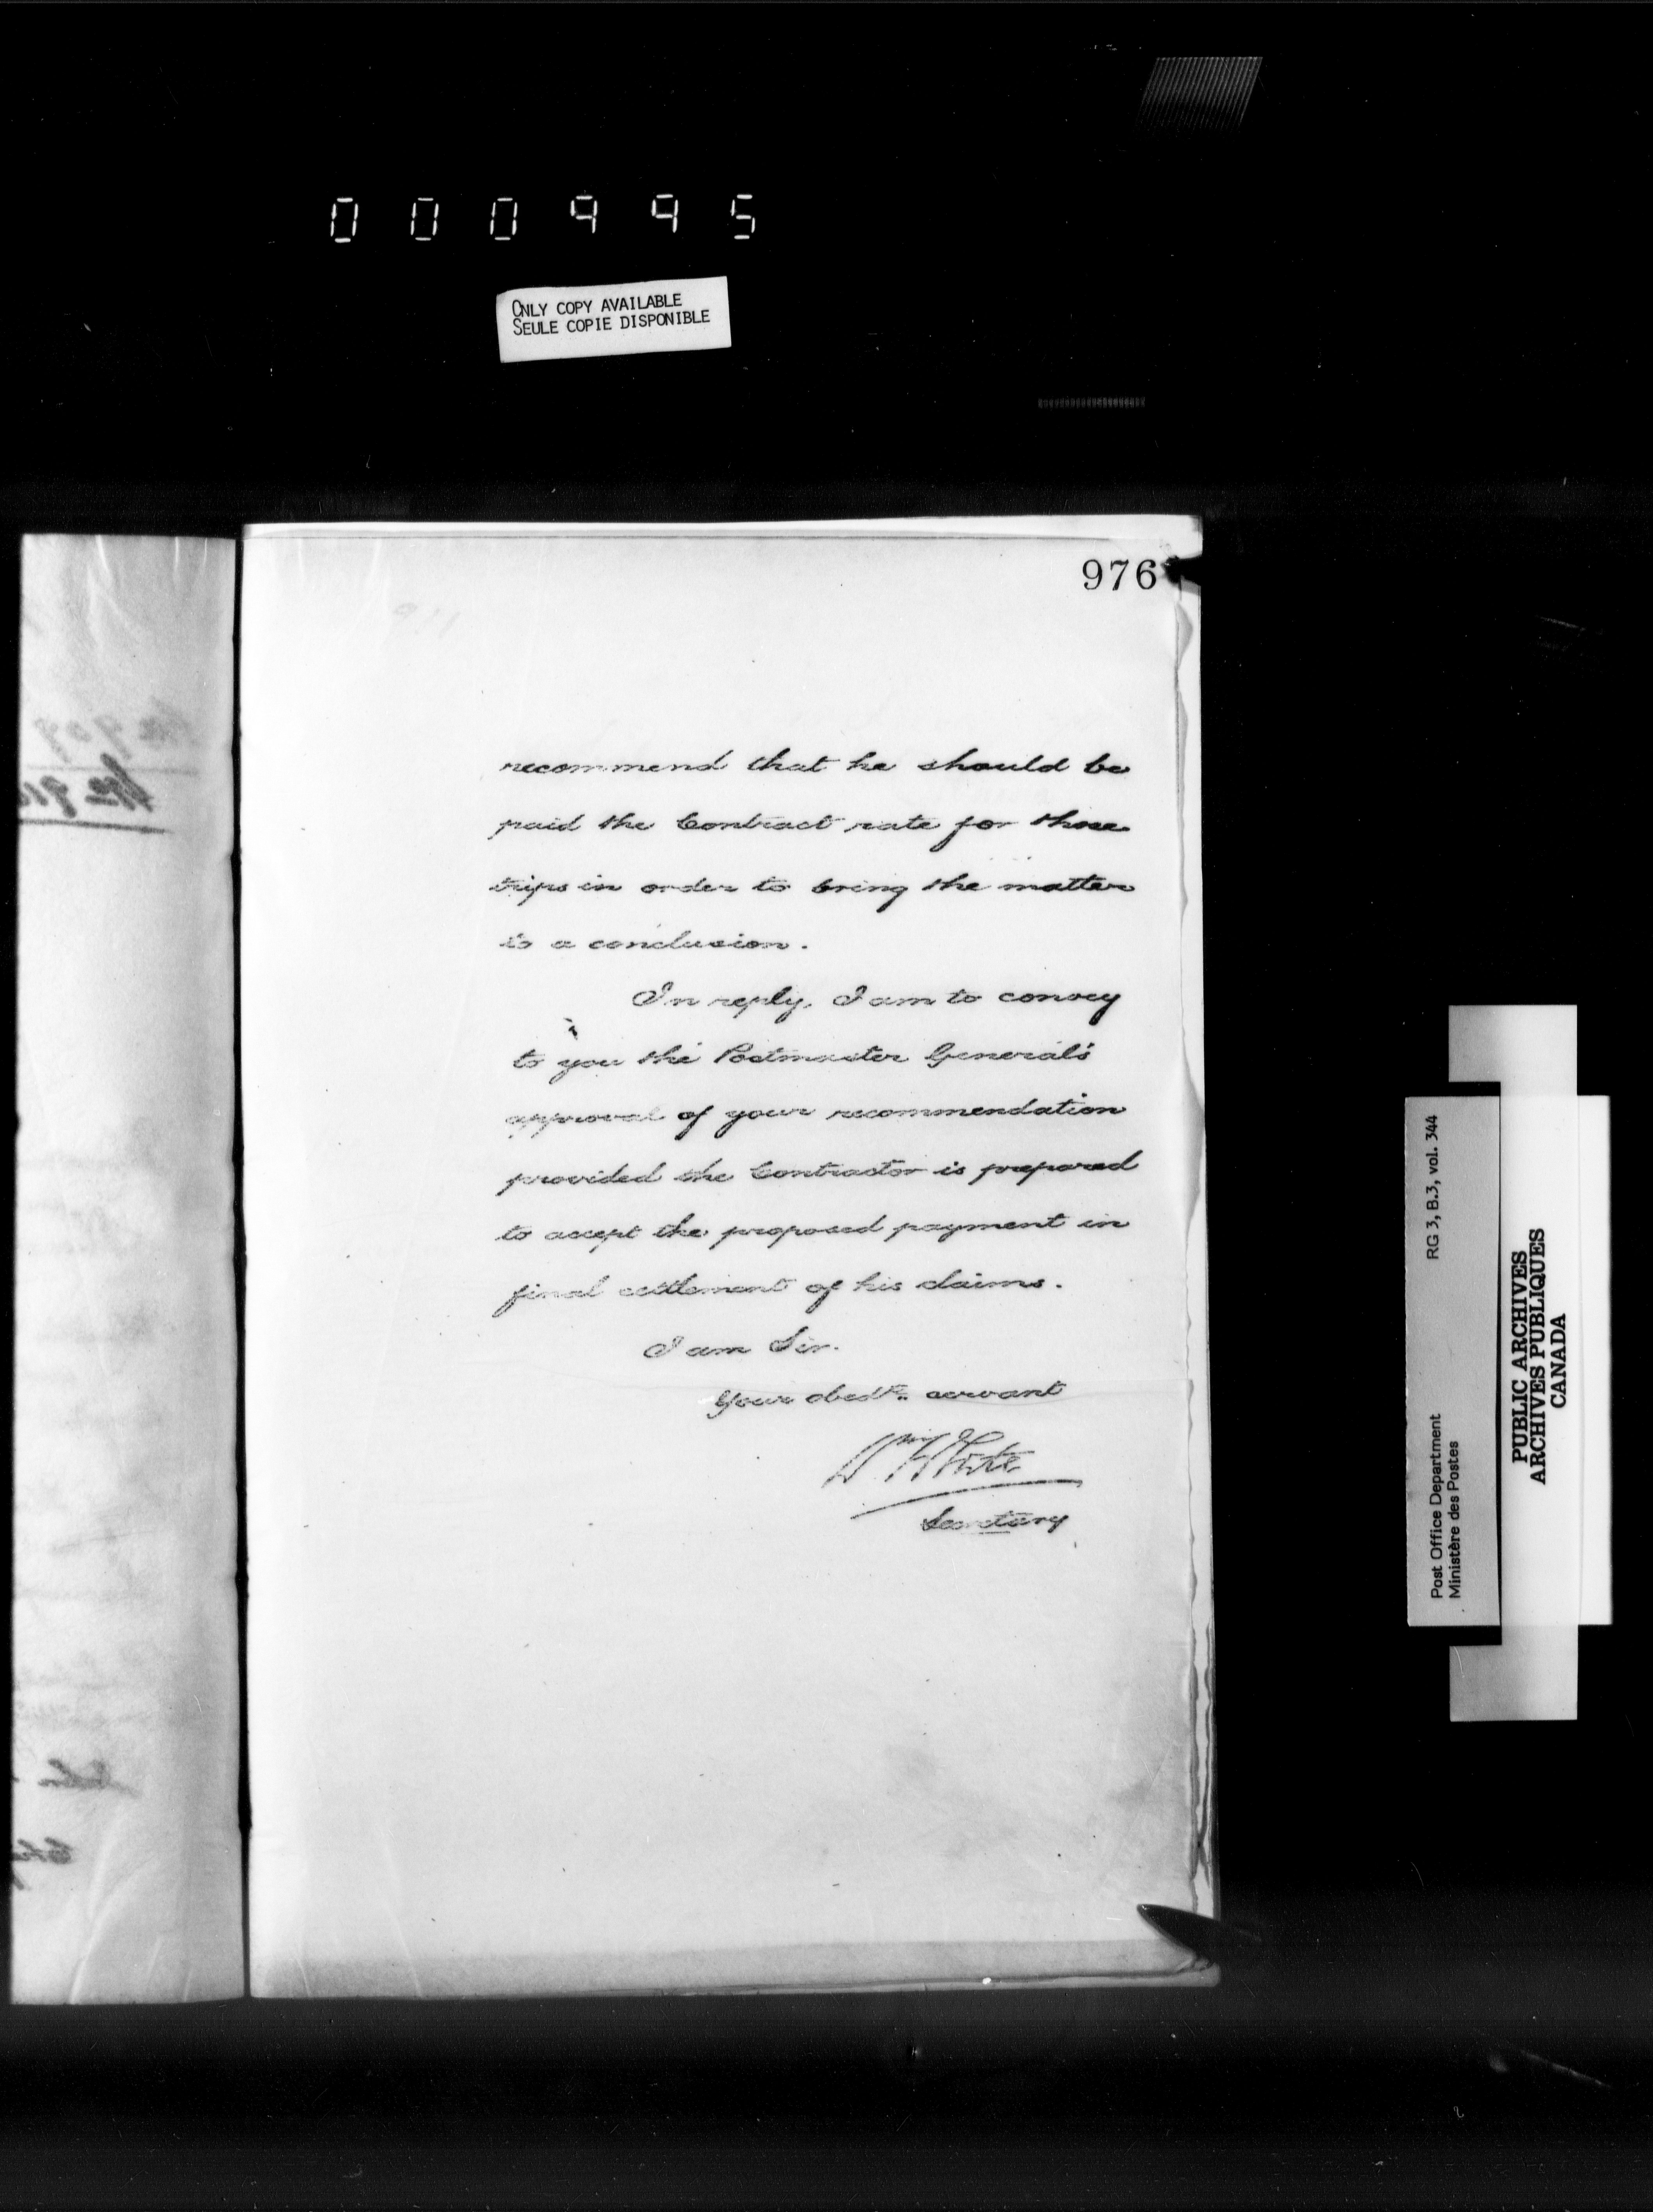 000995
ONLY COPY AVAILABLE
SEULE COPIE DISPONIBLE
976
recommend that he should be
paid the Contract rate for those
trips in order to bring the matter
to a conclusion.
In reply, I am to convey
to you the Postmaster General's
approval of your recommendation
provided the Contractor is prepared
to accept the proposed payment in
final settlement of his claims.
I am Sir.
Your obedt. servant
Wm White
Secretary
Post Office Department RG 3, B.3, vol. 344
Ministère des Postes
PUBLIC ARCHIVES
ARCHIVES PUBLIQUES
CANADA